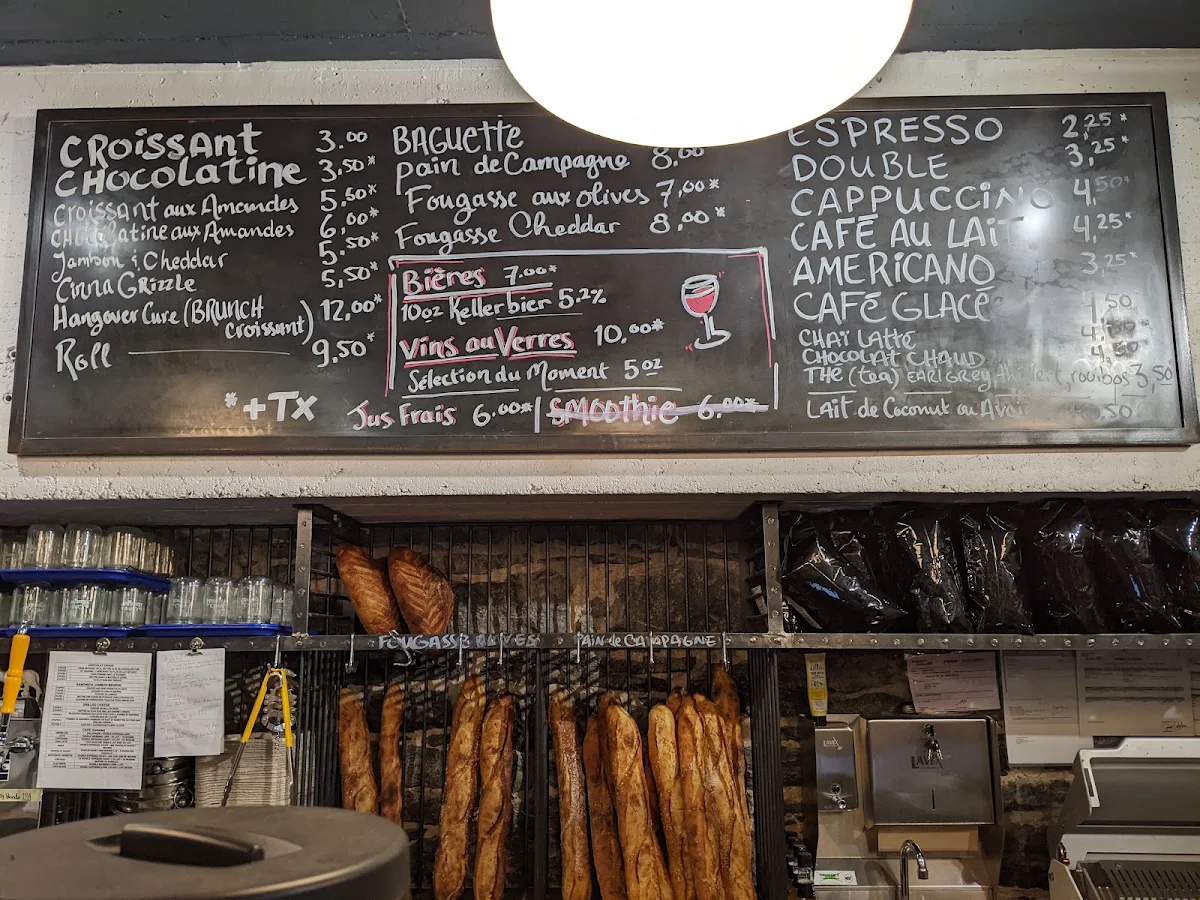 CROISSANT 3.00
CHOCOLATINE 3.50*
Croissant aux Amandes 5,50*
Chocolatine aux Amandes 6,00*
Jambon & Cheddar 5.50*
Cinna Grizzle 5,50*
Hangover Cure (BRUNCH croissant) 12,00*
Roll 9.50*
*+Tx
BAGUETTE
Pain de Campagne 8,00
Fougasse aux olives 7,00*
Fougasse Cheddar 8,00*
Bières 7.00*
10oz Kellerbier 5.2%
Vins au Verres 10,00*
Sélection du Moment 5 oz
Jus Frais 6.00*
SMOOTHIE 6,00*
ESPRESSO 2,25*
DOUBLE 3,25*
CAPPUCCINO 4,50*
CAFÉ AU LAIT 4,25*
AMERICANO 3,25*
CAFÉ GLACÉ 4,50
CHAÏ LATTÉ
CHOCOLAT CHAUD 4,50*
THÉ (tea) EARL GREY rooibos 3,50
LAIT de COCONUT ou
FOUGASSE OLIVES
PAIN de CAMPAGNE